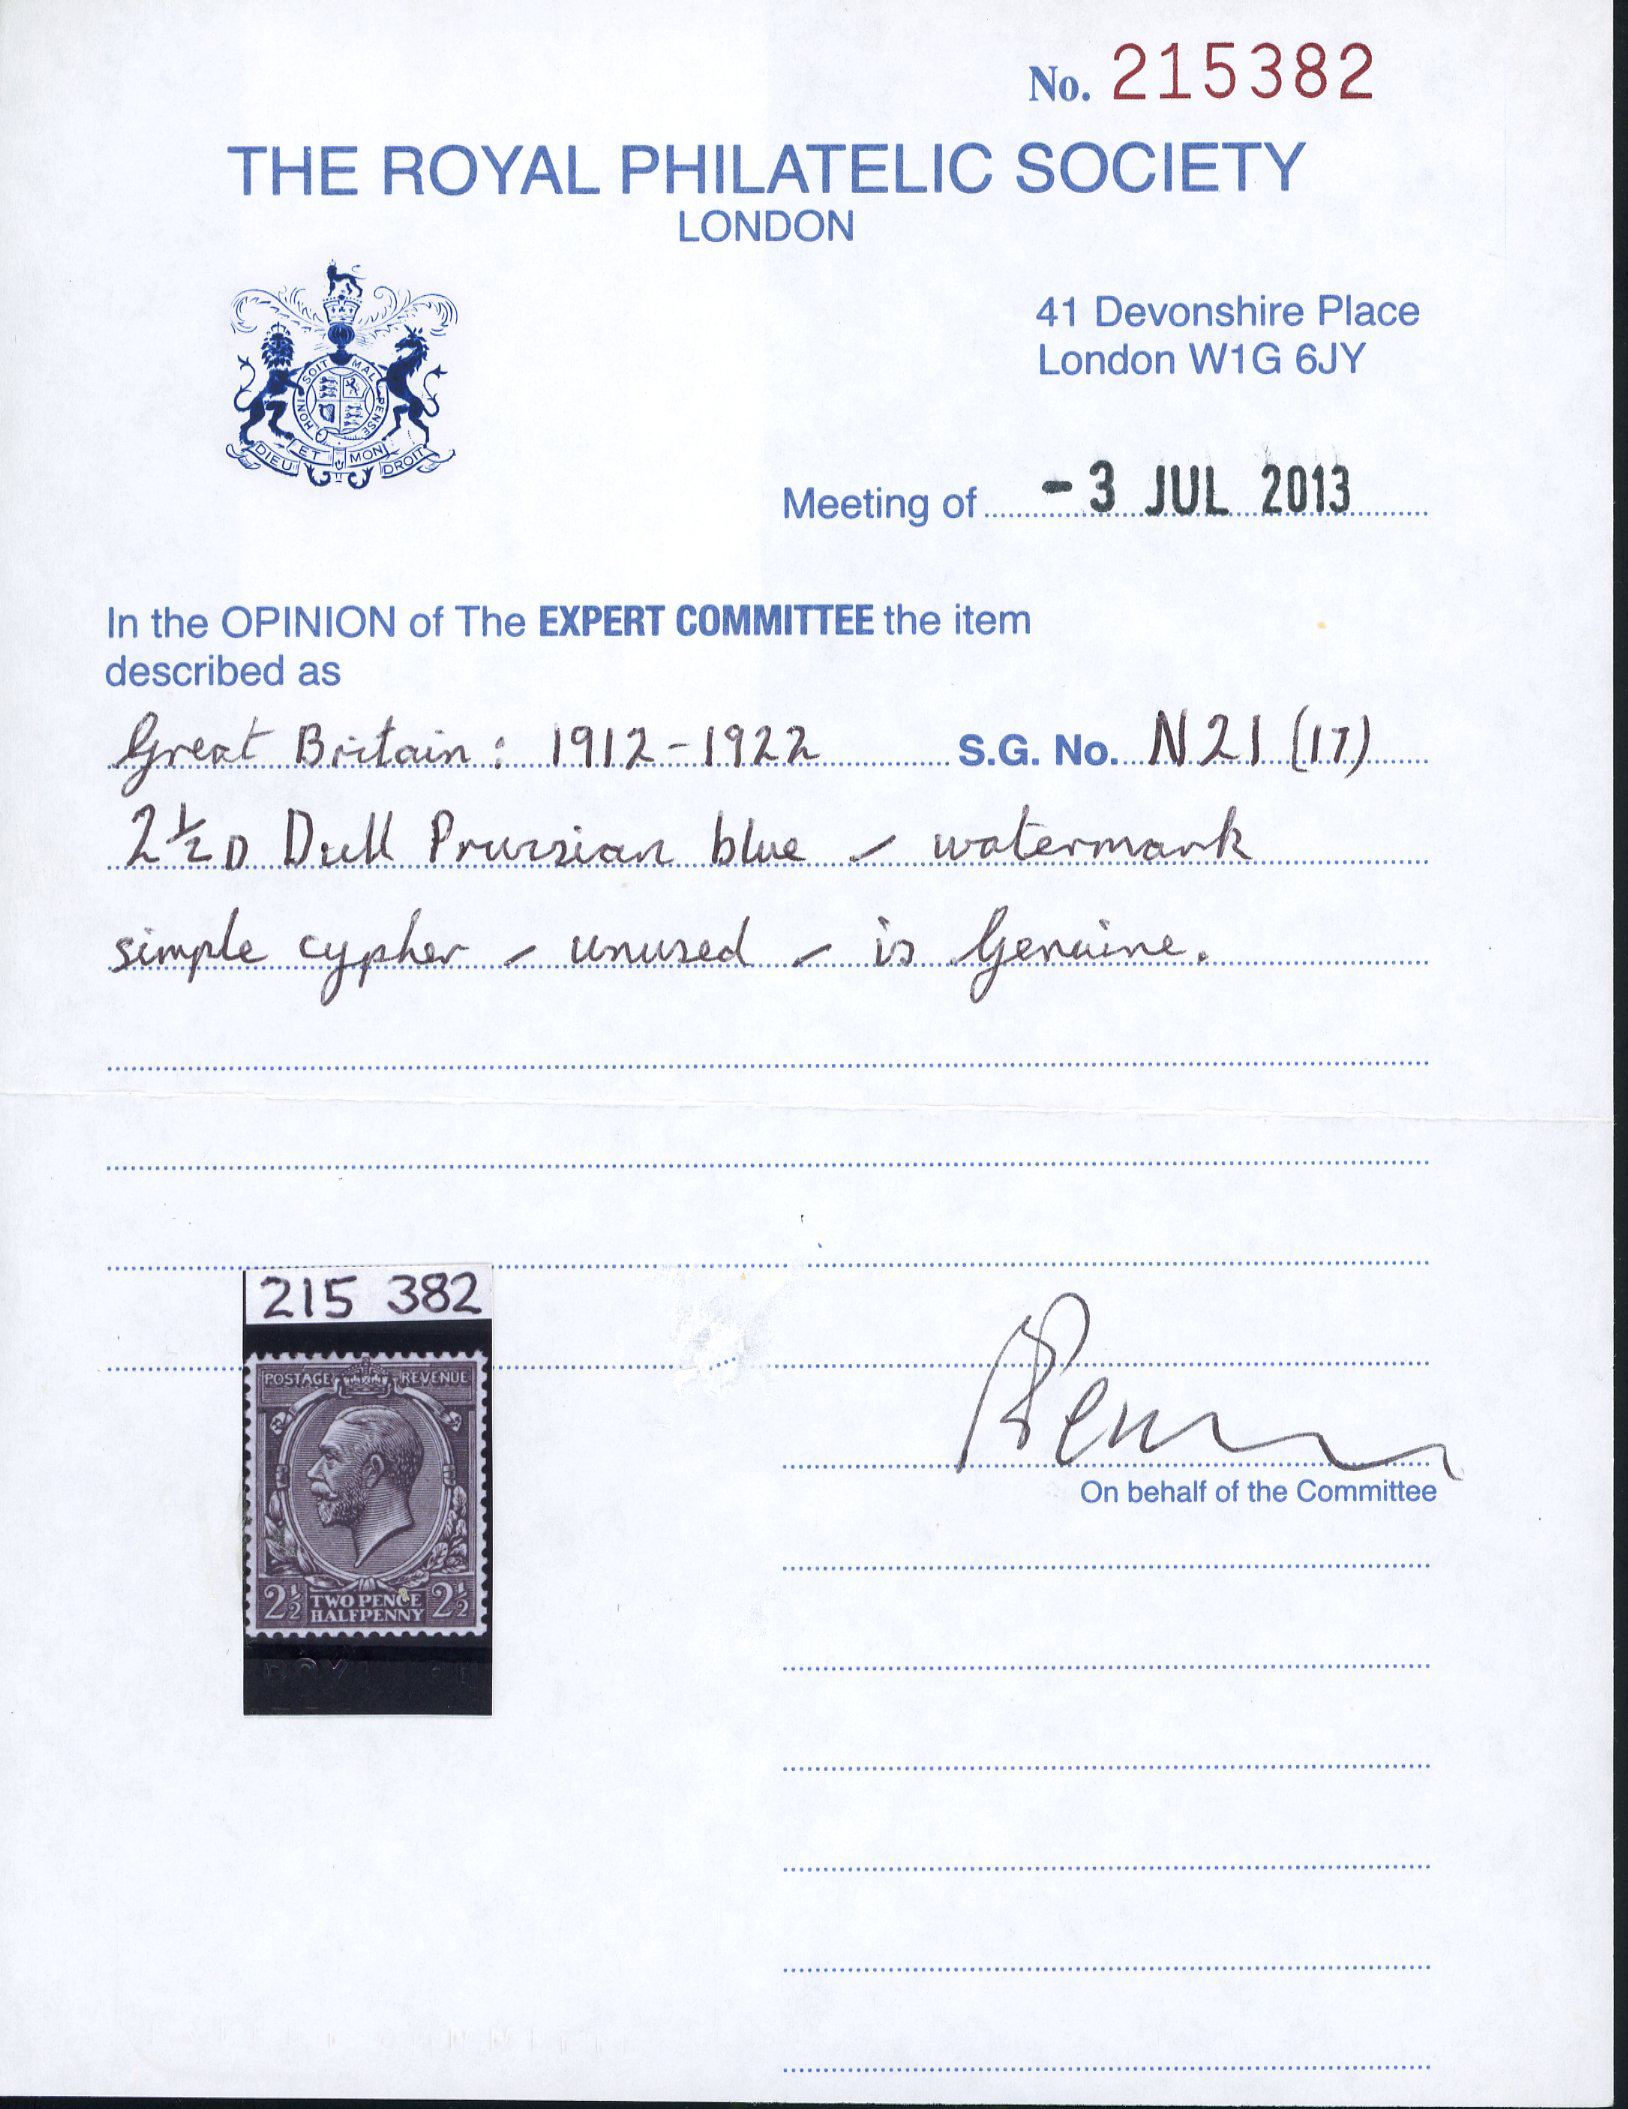 No. 215382
THE ROYAL PHILATELIC SOCIETY
LONDON
HONI SOIT MAL PENSE
DIEU ET MON DROIT
41 Devonshire Place
London W1G 6JY
Meeting of - 3 JUL 2013
In the OPINION of The EXPERT COMMITTEE the item
described as
Great Britain: 1912-1922 S.G. No. N21 (17)
2½D Dull Prussian blue - watermark
simple cypher - unused - is Genuine.
215 382
POSTAGE REVENUE
2½ TWO PENCE 2½
HALFPENNY
On behalf of the Committee